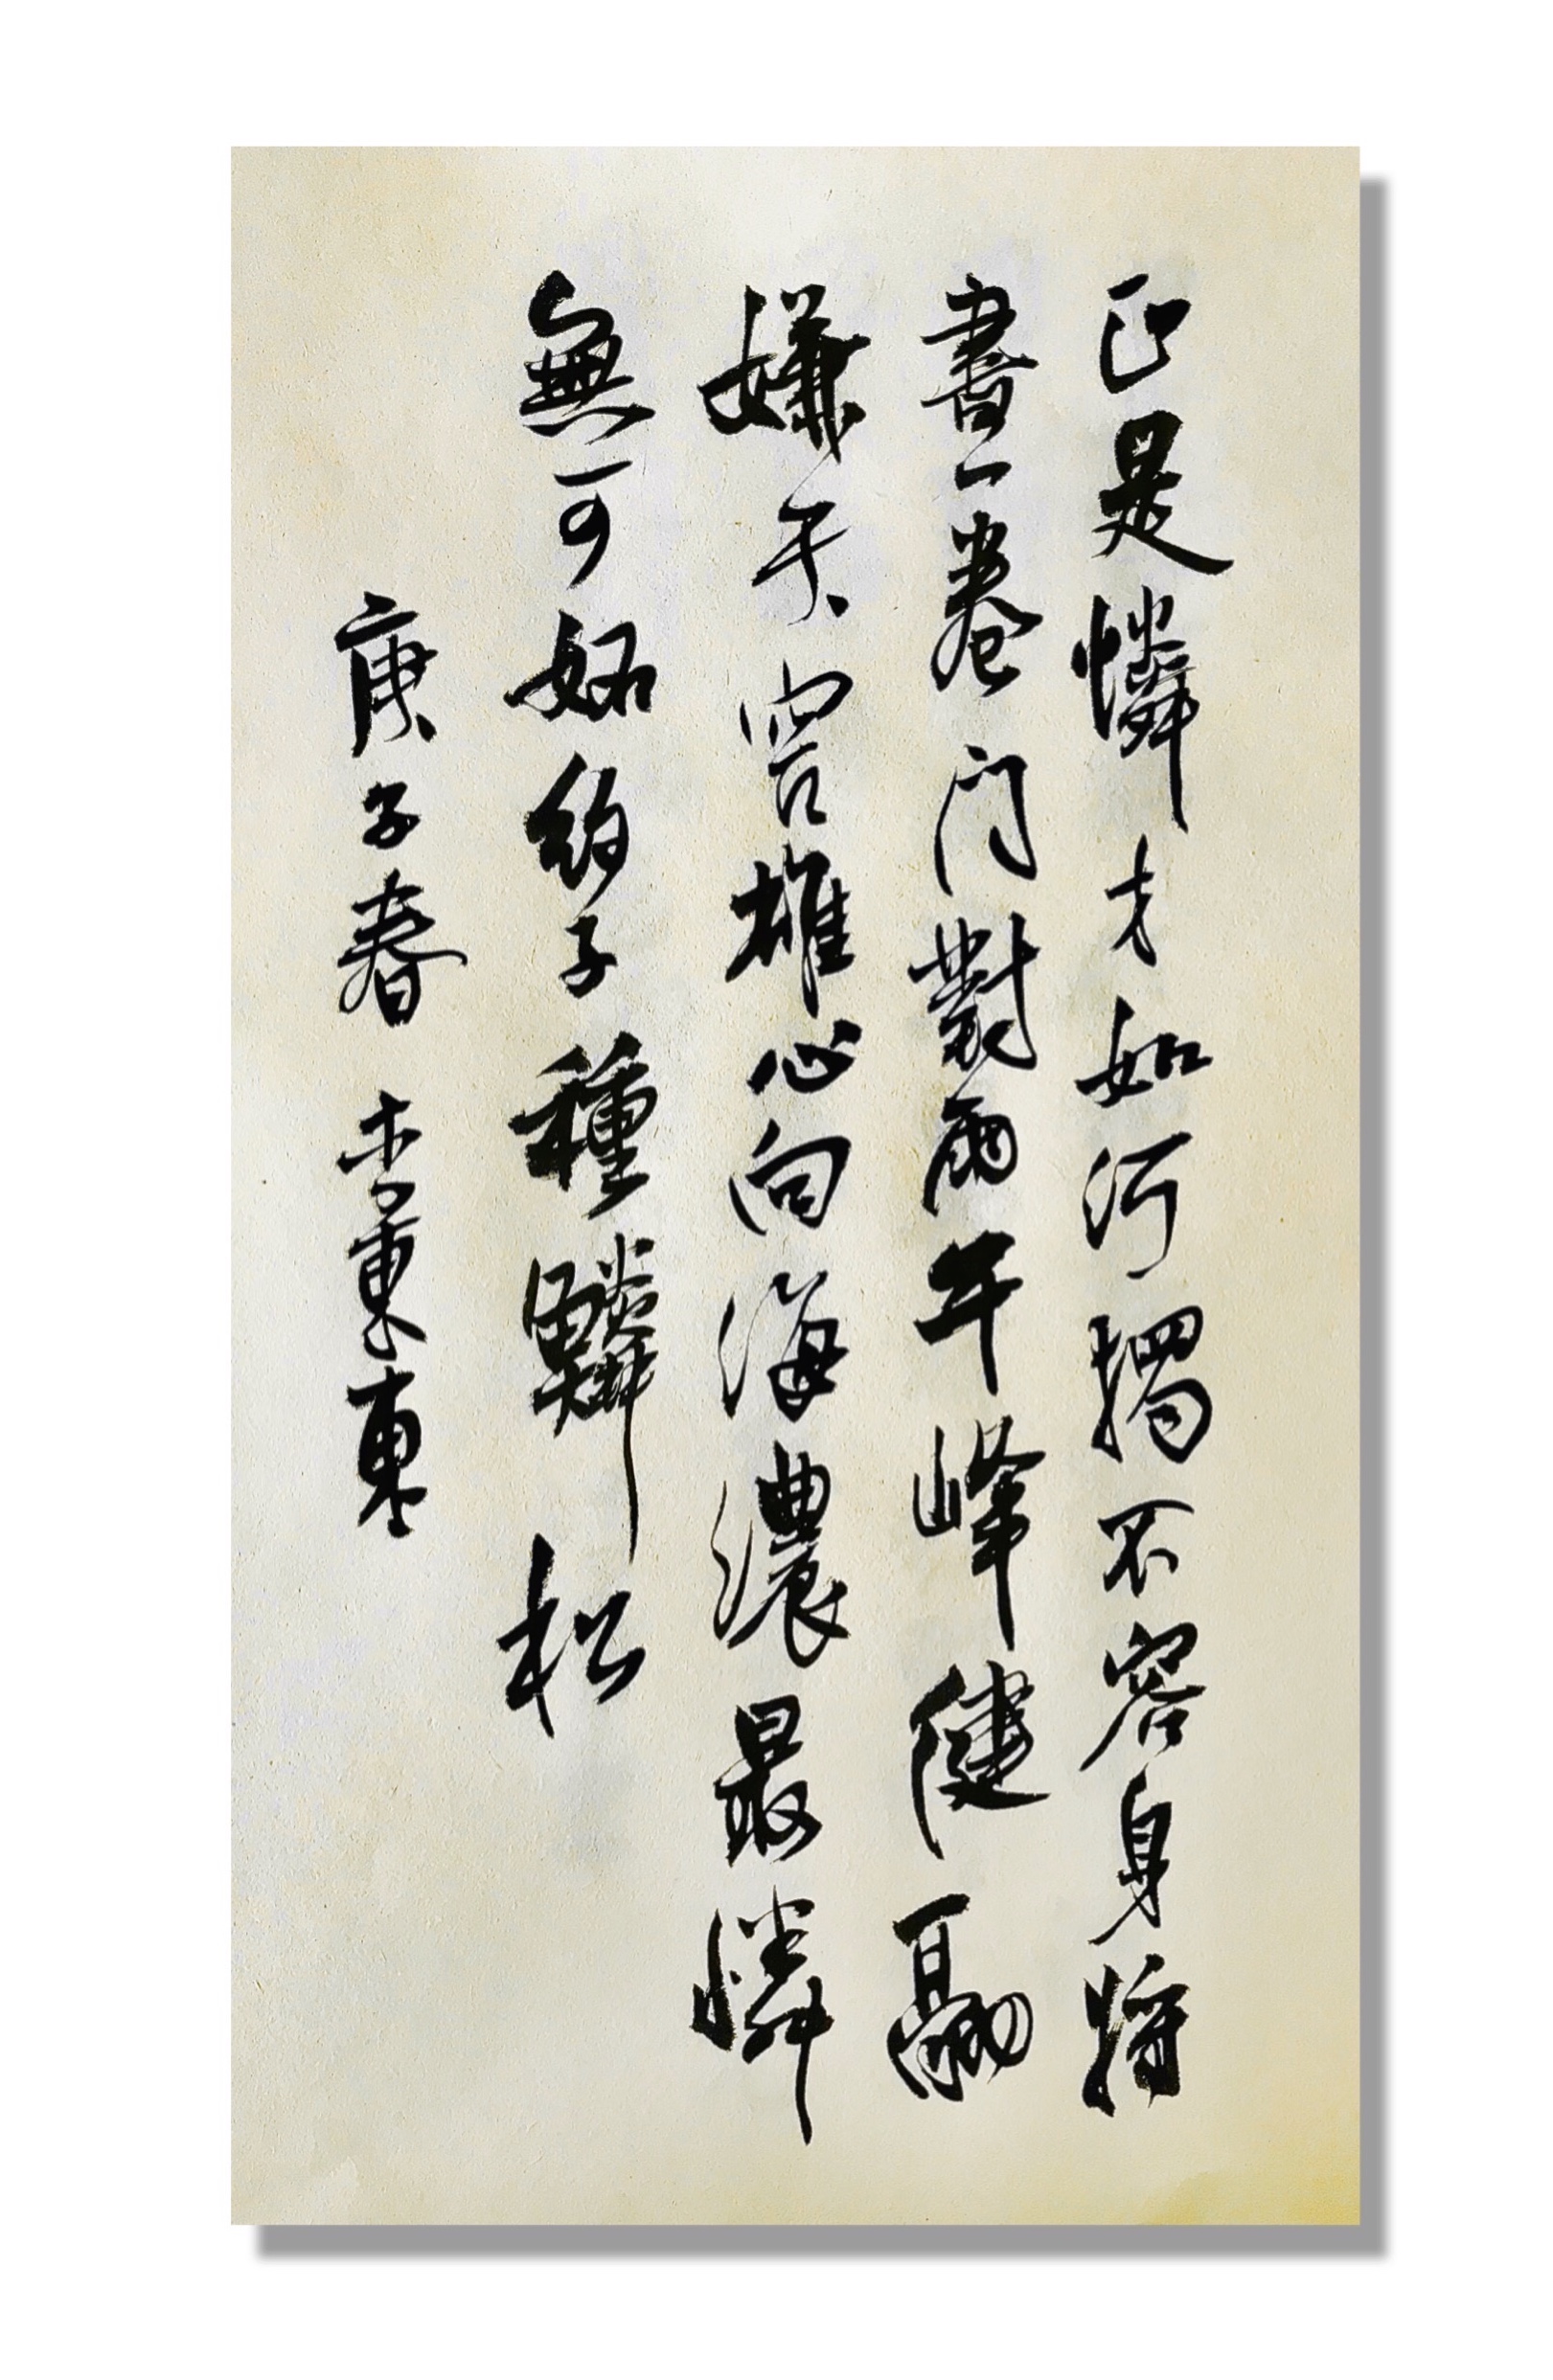 正是憐才如何獨不容身將
書一卷门對兩年峰健翮
嫌天窄雄心向海濃最憐
無可妬約子種鱗松
庚子春 李東東